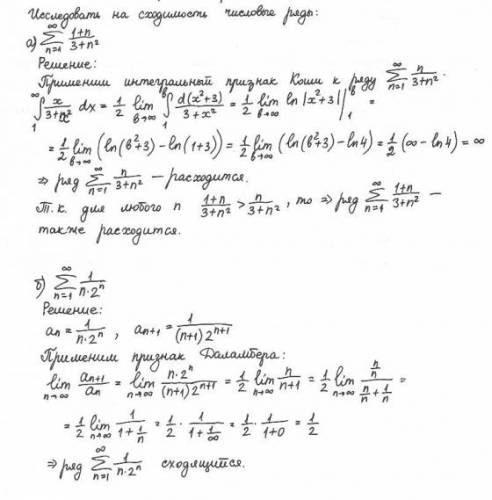 Исследовать на сходимость числовые ряды:
а) ∑_{n=1}^{∞} (1+n)/(3+n²)
Решение:
Применим интегральный признак Коши к ряду ∑_{n=1}^{∞} n/(3+n²).
∫_1^∞ x/(3+x²) dx = 1/2 lim_{b→∞} ∫_1^b d(x²+3)/(3+x²) = 1/2 lim_{b→∞} ln|x²+3| |_1^b =
= 1/2 lim_{b→∞} (ln(b²+3) − ln(1+3)) = 1/2 lim_{b→∞} (ln(b²+3) − ln4) = 1/2 (∞ − ln4) = ∞
⇒ ряд ∑_{n=1}^{∞} n/(3+n²) — расходится.
Т.к. для любого n (1+n)/(3+n²) > n/(3+n²), то ⇒ ряд ∑_{n=1}^{∞} (1+n)/(3+n²) —
также расходится.
б) ∑_{n=1}^{∞} 1/(n·2ⁿ)
Решение:
aₙ = 1/(n·2ⁿ), aₙ₊₁ = 1/((n+1)2ⁿ⁺¹)
Применим признак Даламбера:
lim_{n→∞} aₙ₊₁/aₙ = lim_{n→∞} n·2ⁿ/((n+1)2ⁿ⁺¹) = 1/2 lim_{n→∞} n/(n+1) = 1/2 lim_{n→∞} (n/n)/(n/n + 1/n) =
= 1/2 lim_{n→∞} 1/(1+1/n) = 1/2 · 1/(1+1/∞) = 1/2 · 1/(1+0) = 1/2
⇒ ряд ∑_{n=1}^{∞} 1/(n·2ⁿ) сходящийся.